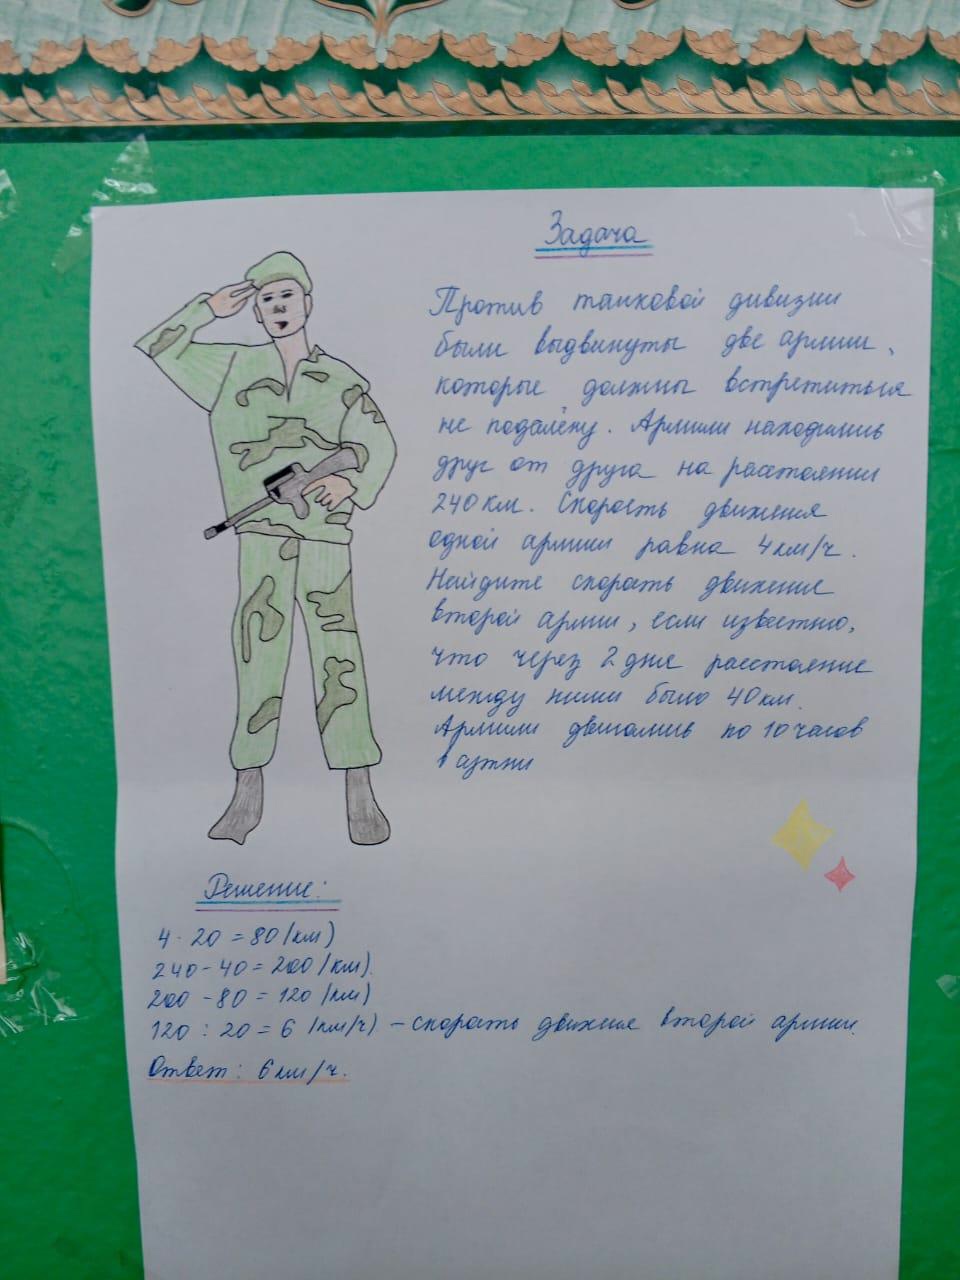 Задача
Против танковой дивизии
были выдвинуты две армии,
которые должны встретиться
не подалёку. Армии находились
друг от друга на расстоянии
240 км. Скорость движения
одной армии равна 4 км/ч.
Найдите скорость движения
второй армии, если известно,
что через 2 дня расстояние
между ними было 40 км.
Армии двигались по 10 часов
в сутки
Решение:
4 · 20 = 80 (км)
240 - 40 = 200 (км).
200 - 80 = 120 (км)
120 : 20 = 6 (км/ч) - скорость движения второй армии.
Ответ: 6 км/ч.